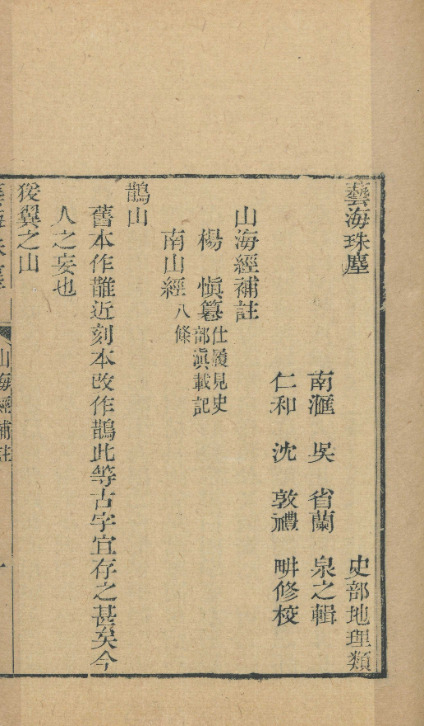 藝海珠塵 史部地理類
南滙 吳 省蘭 泉之輯
仁和 沈 敦禮 畊修校
山海經補註
楊 慎篹 仕履見史部滇載記
南山經 八條
鵲山
舊本作䧿近刻本改作鵲此等古字宜存之甚矣今
人之妄也
猨翼之山
山海經補註 一